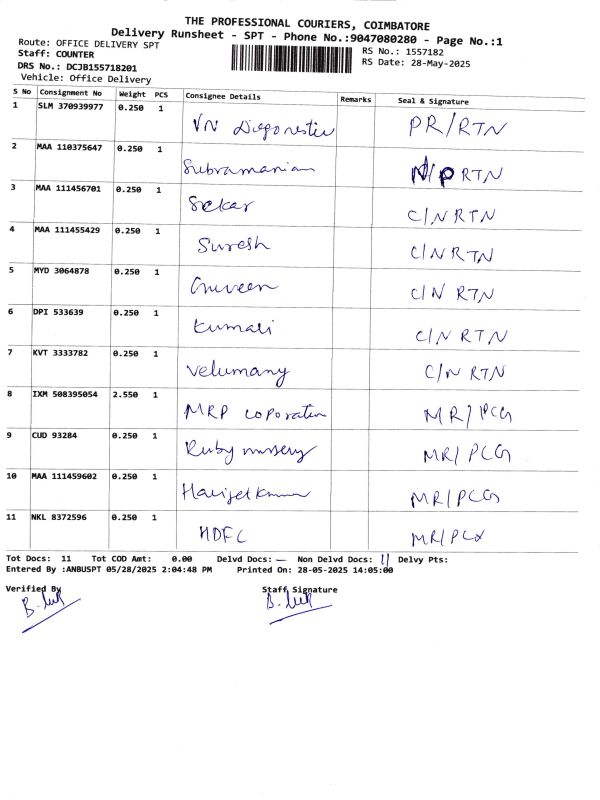 THE PROFESSIONAL COURIERS, COIMBATORE
Delivery Runsheet - SPT - Phone No.:9047080280 - Page No.:1
Route: OFFICE DELIVERY SPT
Staff: COUNTER
DRS No.: DCJB155718201
Vehicle: Office Delivery
RS No.: 1557182
RS Date: 28-May-2025
S No Consignment No Weight PCS Consignee Details Remarks Seal & Signature
1 SLM 370939977 0.250 1 VN PR/RTN
2 MAA 110375647 0.250 1 Subramanian N/P RTN
3 MAA 111456701 0.250 1 Sekar C/N RTN
4 MAA 111455429 0.250 1 Suresh C/N RTN
5 MYD 3064878 0.250 1 C/N RTN
6 DPI 533639 0.250 1 Kumari C/N RTN
7 KVT 3333782 0.250 1 Velumany C/N RTN
8 IXM 508395054 2.550 1 MRP Coporation MR/PCG
9 CUD 93284 0.250 1 Ruby nursery MR/PCG
10 MAA 111459602 0.250 1 MR/PCG
11 NKL 8372596 0.250 1 HDFC MR/PCX
Tot Docs: 11 Tot COD Amt: 0.00 Delvd Docs: — Non Delvd Docs: 11 Delvy Pts:
Entered By :ANBUSPT 05/28/2025 2:04:48 PM Printed On: 28-05-2025 14:05:00
Verified By Staff Signature